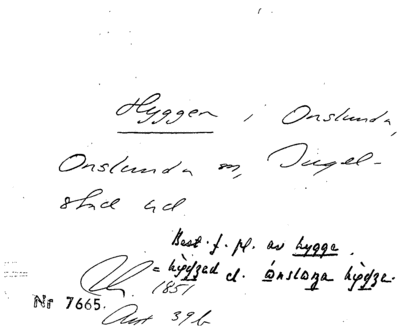 Hyggen i Onslunda,
Onslunda sn, Ingel-
stad hd
Best. f. pl. av hygge.
= hỳgdzad el. ånslωna hỳgdze.
1851
Nr 7665.
Avt 39b